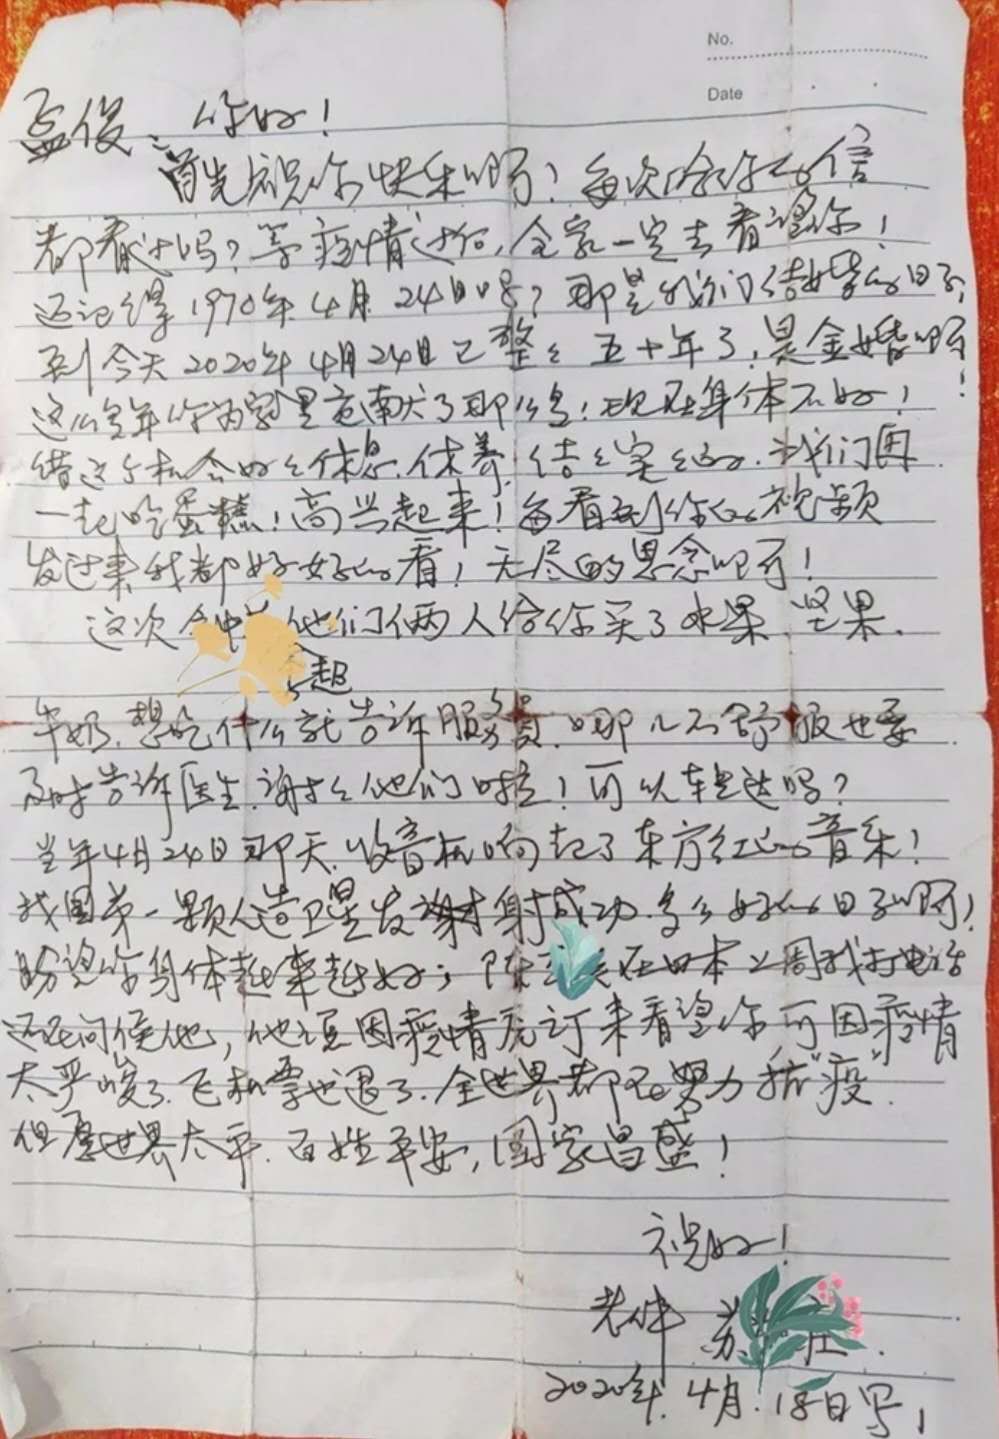 No.
Date
孟俊:你好!
首先祝你快乐啊!每次给你的信
都看过吗?等疫情过后,全家一定去看望你!
还记得1970年4月24日吗?那是我们结婚的日子,
到今天2020年4月24日已整整五十年了,是金婚啊!
这么多年你为家里贡献了那么多!现在身体不好!
借这个机会好好休息.休养.结结实实的.我们再
一起吃蛋糕!高兴起来!每看到你的视频
发过来我都好好的看!无尽的思念啊!
这次 他们俩人给你买了水果.坚果.
牛奶.想吃什么就告诉服务员.哪儿不舒服也要
及时告诉医生.谢谢他们啦!可以转达吗?
当年4月24日那天.收音机响起了东方红的音乐!
我国第一颗人造卫星发射成功.多么好的日子啊!
盼望你身体越来越好;陈 在日本上周我打电话
还在问候他,他说因疫情 订来看望你可因疫情
太严峻了.飞机票也退了.全世界都在努力抗"疫".
但愿世界太平.百姓平安,国家昌盛!
祝好!
老伴 苏
2020年.4月.18日写!